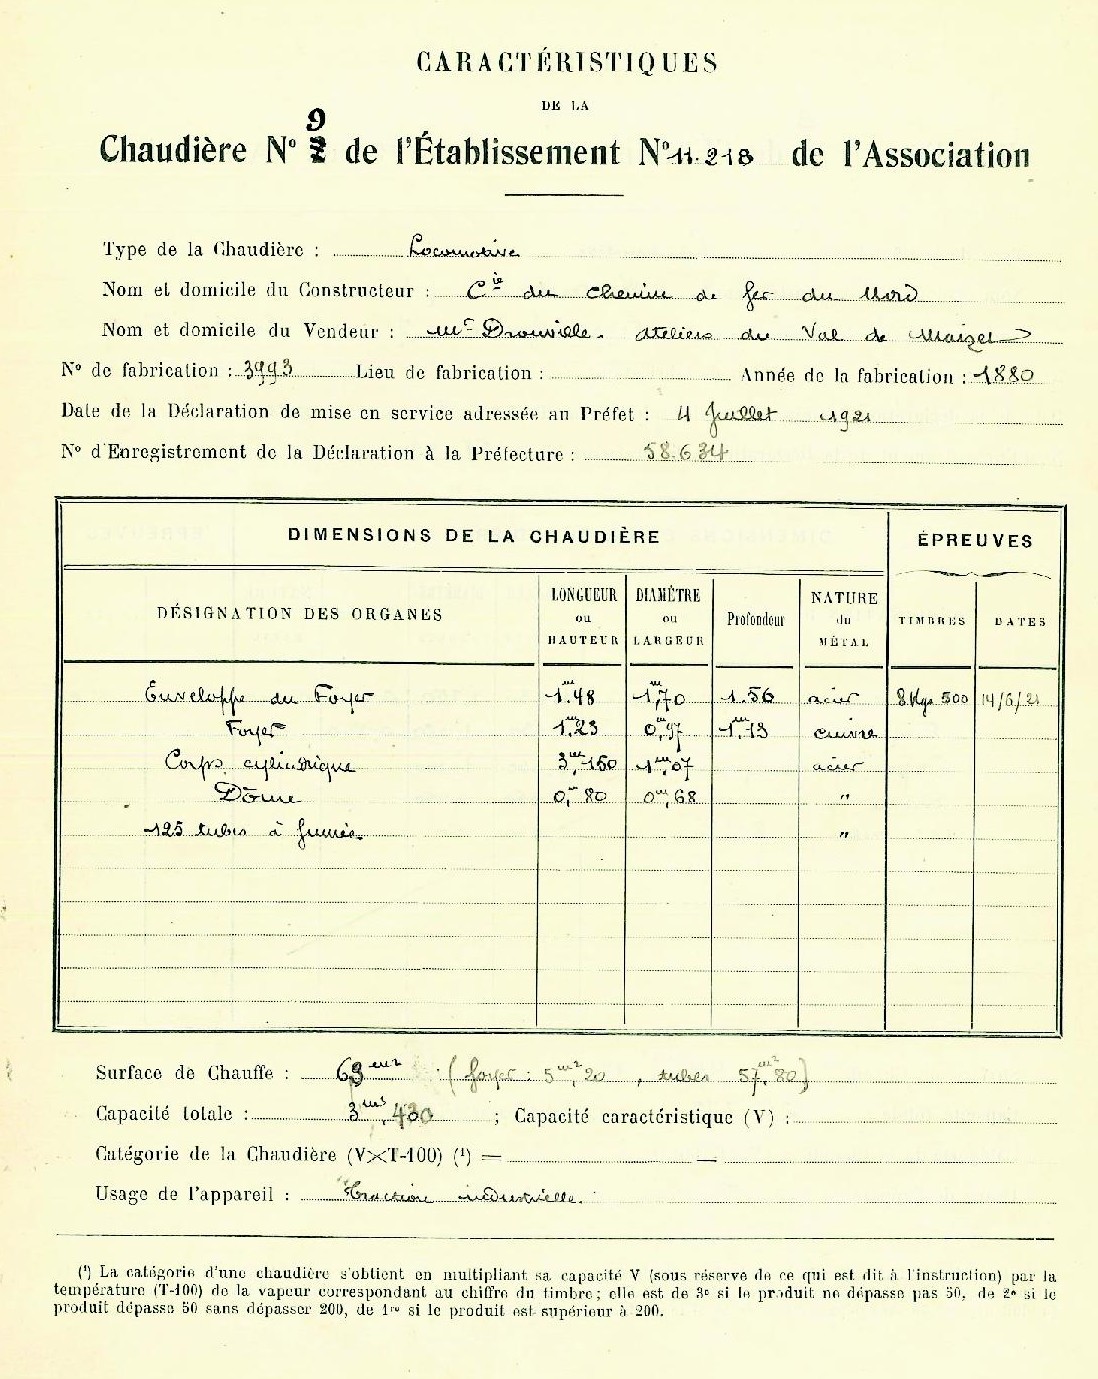 CARACTÉRISTIQUES
DE LA
9
Chaudière N° 7 de l'Établissement N° 11.218 de l'Association
Type de la Chaudière : Locomotive
Nom et domicile du Constructeur : Cie du Chemin de fer du Nord
Nom et domicile du Vendeur : Mr Drouville. Ateliers du Val de
N° de fabrication : 3993 Lieu de fabrication : Année de la fabrication : 1880
Date de la Déclaration de mise en service adressée au Préfet : 4 Juillet 1921
N° d'Enregistrement de la Déclaration à la Préfecture : 58.634
DIMENSIONS DE LA CHAUDIÈRE ÉPREUVES
DÉSIGNATION DES ORGANES LONGUEUR ou HAUTEUR DIAMÈTRE ou LARGEUR Profondeur NATURE du MÉTAL TIMBRES DATES
Enveloppe du Foyer 1m.48 1m,70 1.56 acier 8 Kgs 500 14/6/21
Foyer 1m.23 0m,97 1m,13 cuivre
Corps cylindrique 3m,150 1m,07 acier
Dôme 0,m80 0m,68 "
125 tubes à fumée. "
Surface de Chauffe : 63m2 (foyer : 5m2,20 , tubes 57m2,80)
Capacité totale : 3m3,430 ; Capacité caractéristique (V) :
Catégorie de la Chaudière (V×T-100) (¹) = —
Usage de l'appareil : Traction industrielle.
(¹) La catégorie d'une chaudière s'obtient en multipliant sa capacité V (sous réserve de ce qui est dit à l'instruction) par la
température (T-100) de la vapeur correspondant au chiffre du timbre ; elle est de 3e si le produit ne dépasse pas 50, de 2e si le
produit dépasse 50 sans dépasser 200, de 1re si le produit est supérieur à 200.